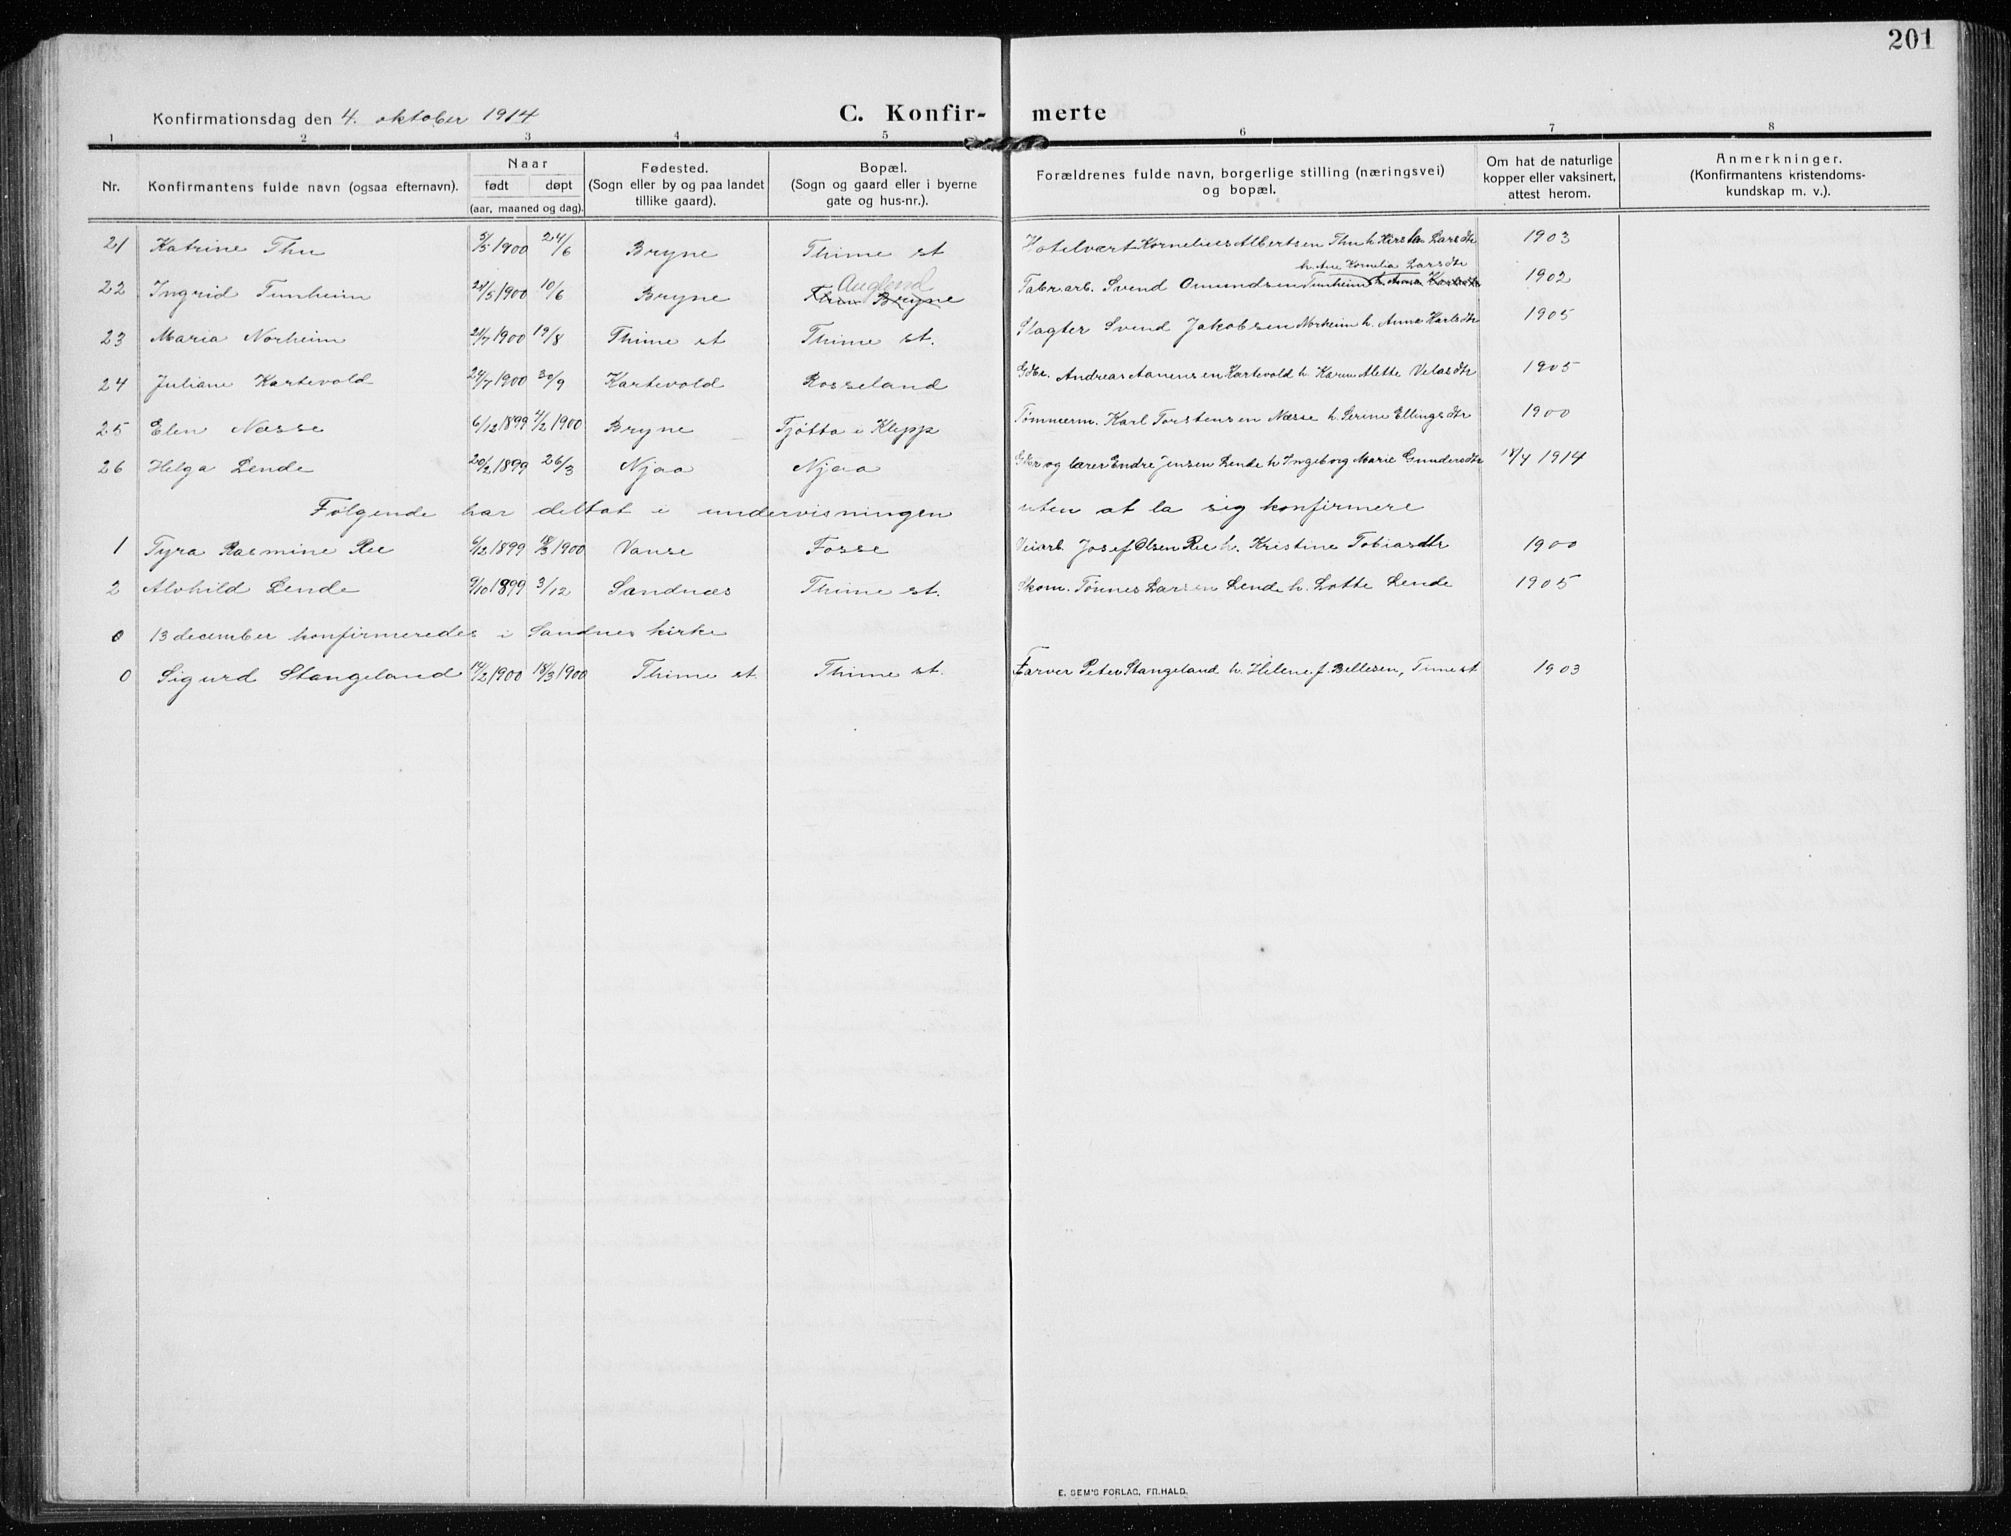 201
Konfirmationsdag den 4. oktober 1914
C. Konfir- merte
1 2 3 4 5 6 7 8
Nr.
Konfirmantens fulde navn (ogsaa efternavn).
Naar
født døpt
(aar, maaned og dag).
Fødested.
(Sogn eller by og paa landet
tillike gaard).
Bopæl.
(Sogn og gaard eller i byerne
gate og hus-nr.).
Forældrenes fulde navn, borgerlige stilling (næringsvei)
og bopæl.
Om hat de naturlige
kopper eller vaksinert,
attest herom.
Anmerkninger.
(Konfirmantens kristendoms-
kundskap m. v.).
21 Katrine Thu 5/5 1900 24/6 Bryne Thime st Hotelvært Kornelius Albertsen Thu h. Larsdtr 1903
Auglend h. Ane Kornelia Larsdtr
22 Ingrid Tunheim 24/5 1900 10/6 Bryne Bryne Fabr.arb. Svend Omundsen Tunheim h. Anna 1902
23 Maria Norheim 24/7 1900 19/8 Thime st Thime st. Slagter Svend Jakobsen Norheim h. Anna Karlsdtr 1905
24 Juliane Kartevold 24/7 1900 30/9 Kartevold Rosseland Gbr. Andreas Aanensen Kartevold h. Karen Alette Velasdtr 1905
25 Elen Næsse 6/12 1899 4/2 1900 Bryne Tjøtta i Klepp Tømmerm. Karl Torstensen Næsse h. Serine Ellingsdtr 1900
26 Helga Lende 20/2 1899 26/3 Njaa Njaa Gbr og lærer Endre Jensen Lende h Ingeborg Marie Gundersdtr 18/4 1914
Følgende har deltat i undervisningen uten at la sig konfirmere
1 Tyra Rasmine Ree 6/12 1899 1900 Vanse Fosse Veiarb. Josef Olsen Ree h. Kristine Tobiasdtr 1900
2 Alvhild Lende 9/10 1899 3/12 Sandnæs Thime st. Skom. Tønnes Larsen Lende h. Lotte Lende 1905
0 13 december konfirmeredes i Sandnes kirke
0 Sigurd Stangeland 14/2 1900 18/3 1900 Thime st. Thime st. Farver Peter Stangeland h. Helene f. Bellesen, Time st 1903
E. SEM'S FORLAG, FR.HALD.